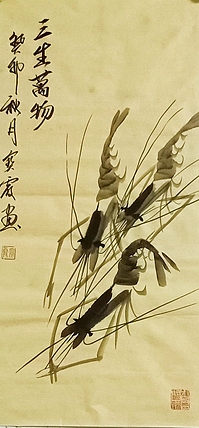 三生萬物
癸卯秋月寶宸畫